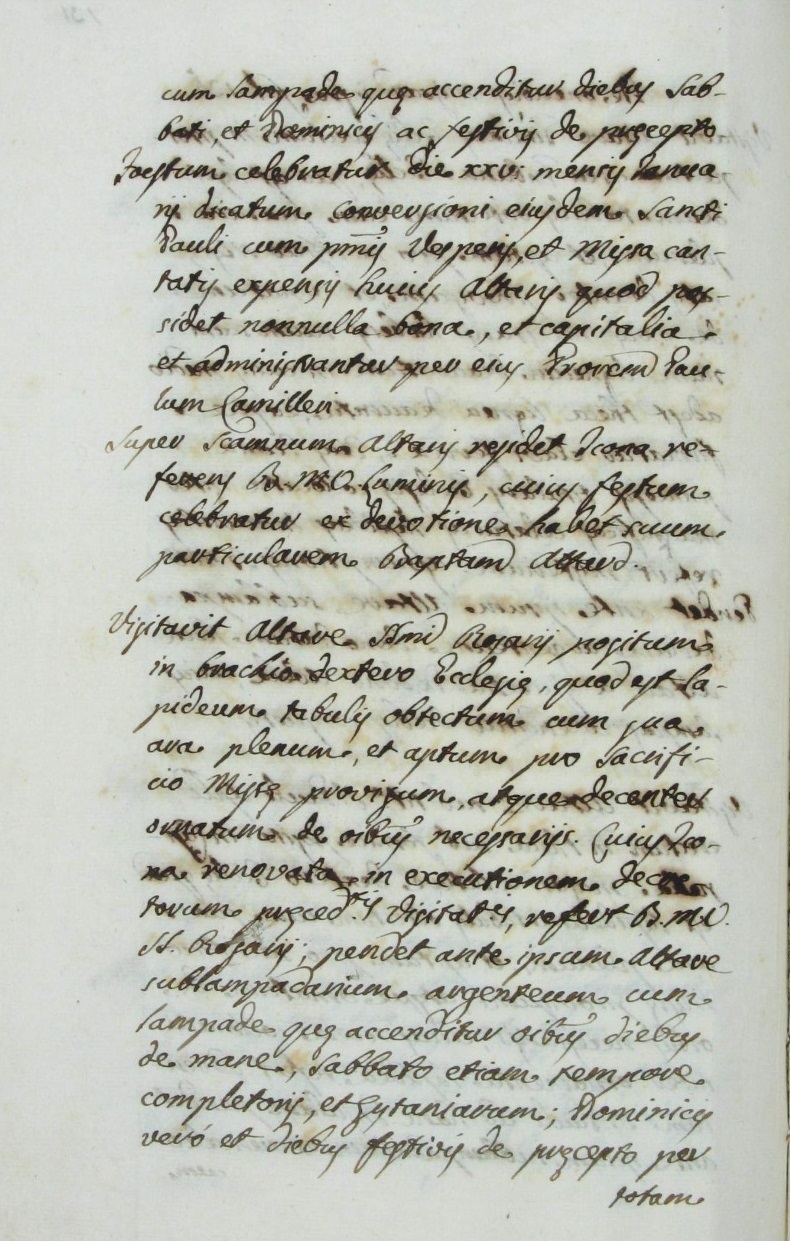 cum lampade quę accenditur diebus Sab-
bati, et Dominicis ac festivis de pręcepto
Foestum celebratur die xxv: mensis Janua-
rij dicatum conversioni eiusdem Sancti
Pauli cum pm̃is Vesperis, et Missa can-
tatis expensis huius Altaris quod pos-
sidet nonnulla bona, et capitalia
et administrantur per eius Provem̃ Pau-
lum Camilleri
Super Scamnum Altaris residet Icona re-
ferens B.M.V. Luminis, cuius festum
celebratur ex devotione habet suum
particularem
Visitavit Altare SSmi Rosarij positum
in brachio dextero Ecclesię, quod est la-
pideum tabulis obtectum cum sua
ara plenum, et aptum pro Sacrifi-
cio Missę provisum, atque decenter
ornatum de oibus necessarijs. Cuius Ico-
na renovata in executionem decre-
torum pręced.tis Visitat.is, refert B.M.V.
SS. Rosarij; pendet ante ipsum Altare
sublampadarium argenteum cum
lampade quę accenditur oibus diebus
de mane, Sabbato etiam tempore
completorij, et Lytaniarum; Dominicis
veró et diebus festivis de pręcepto per
totam